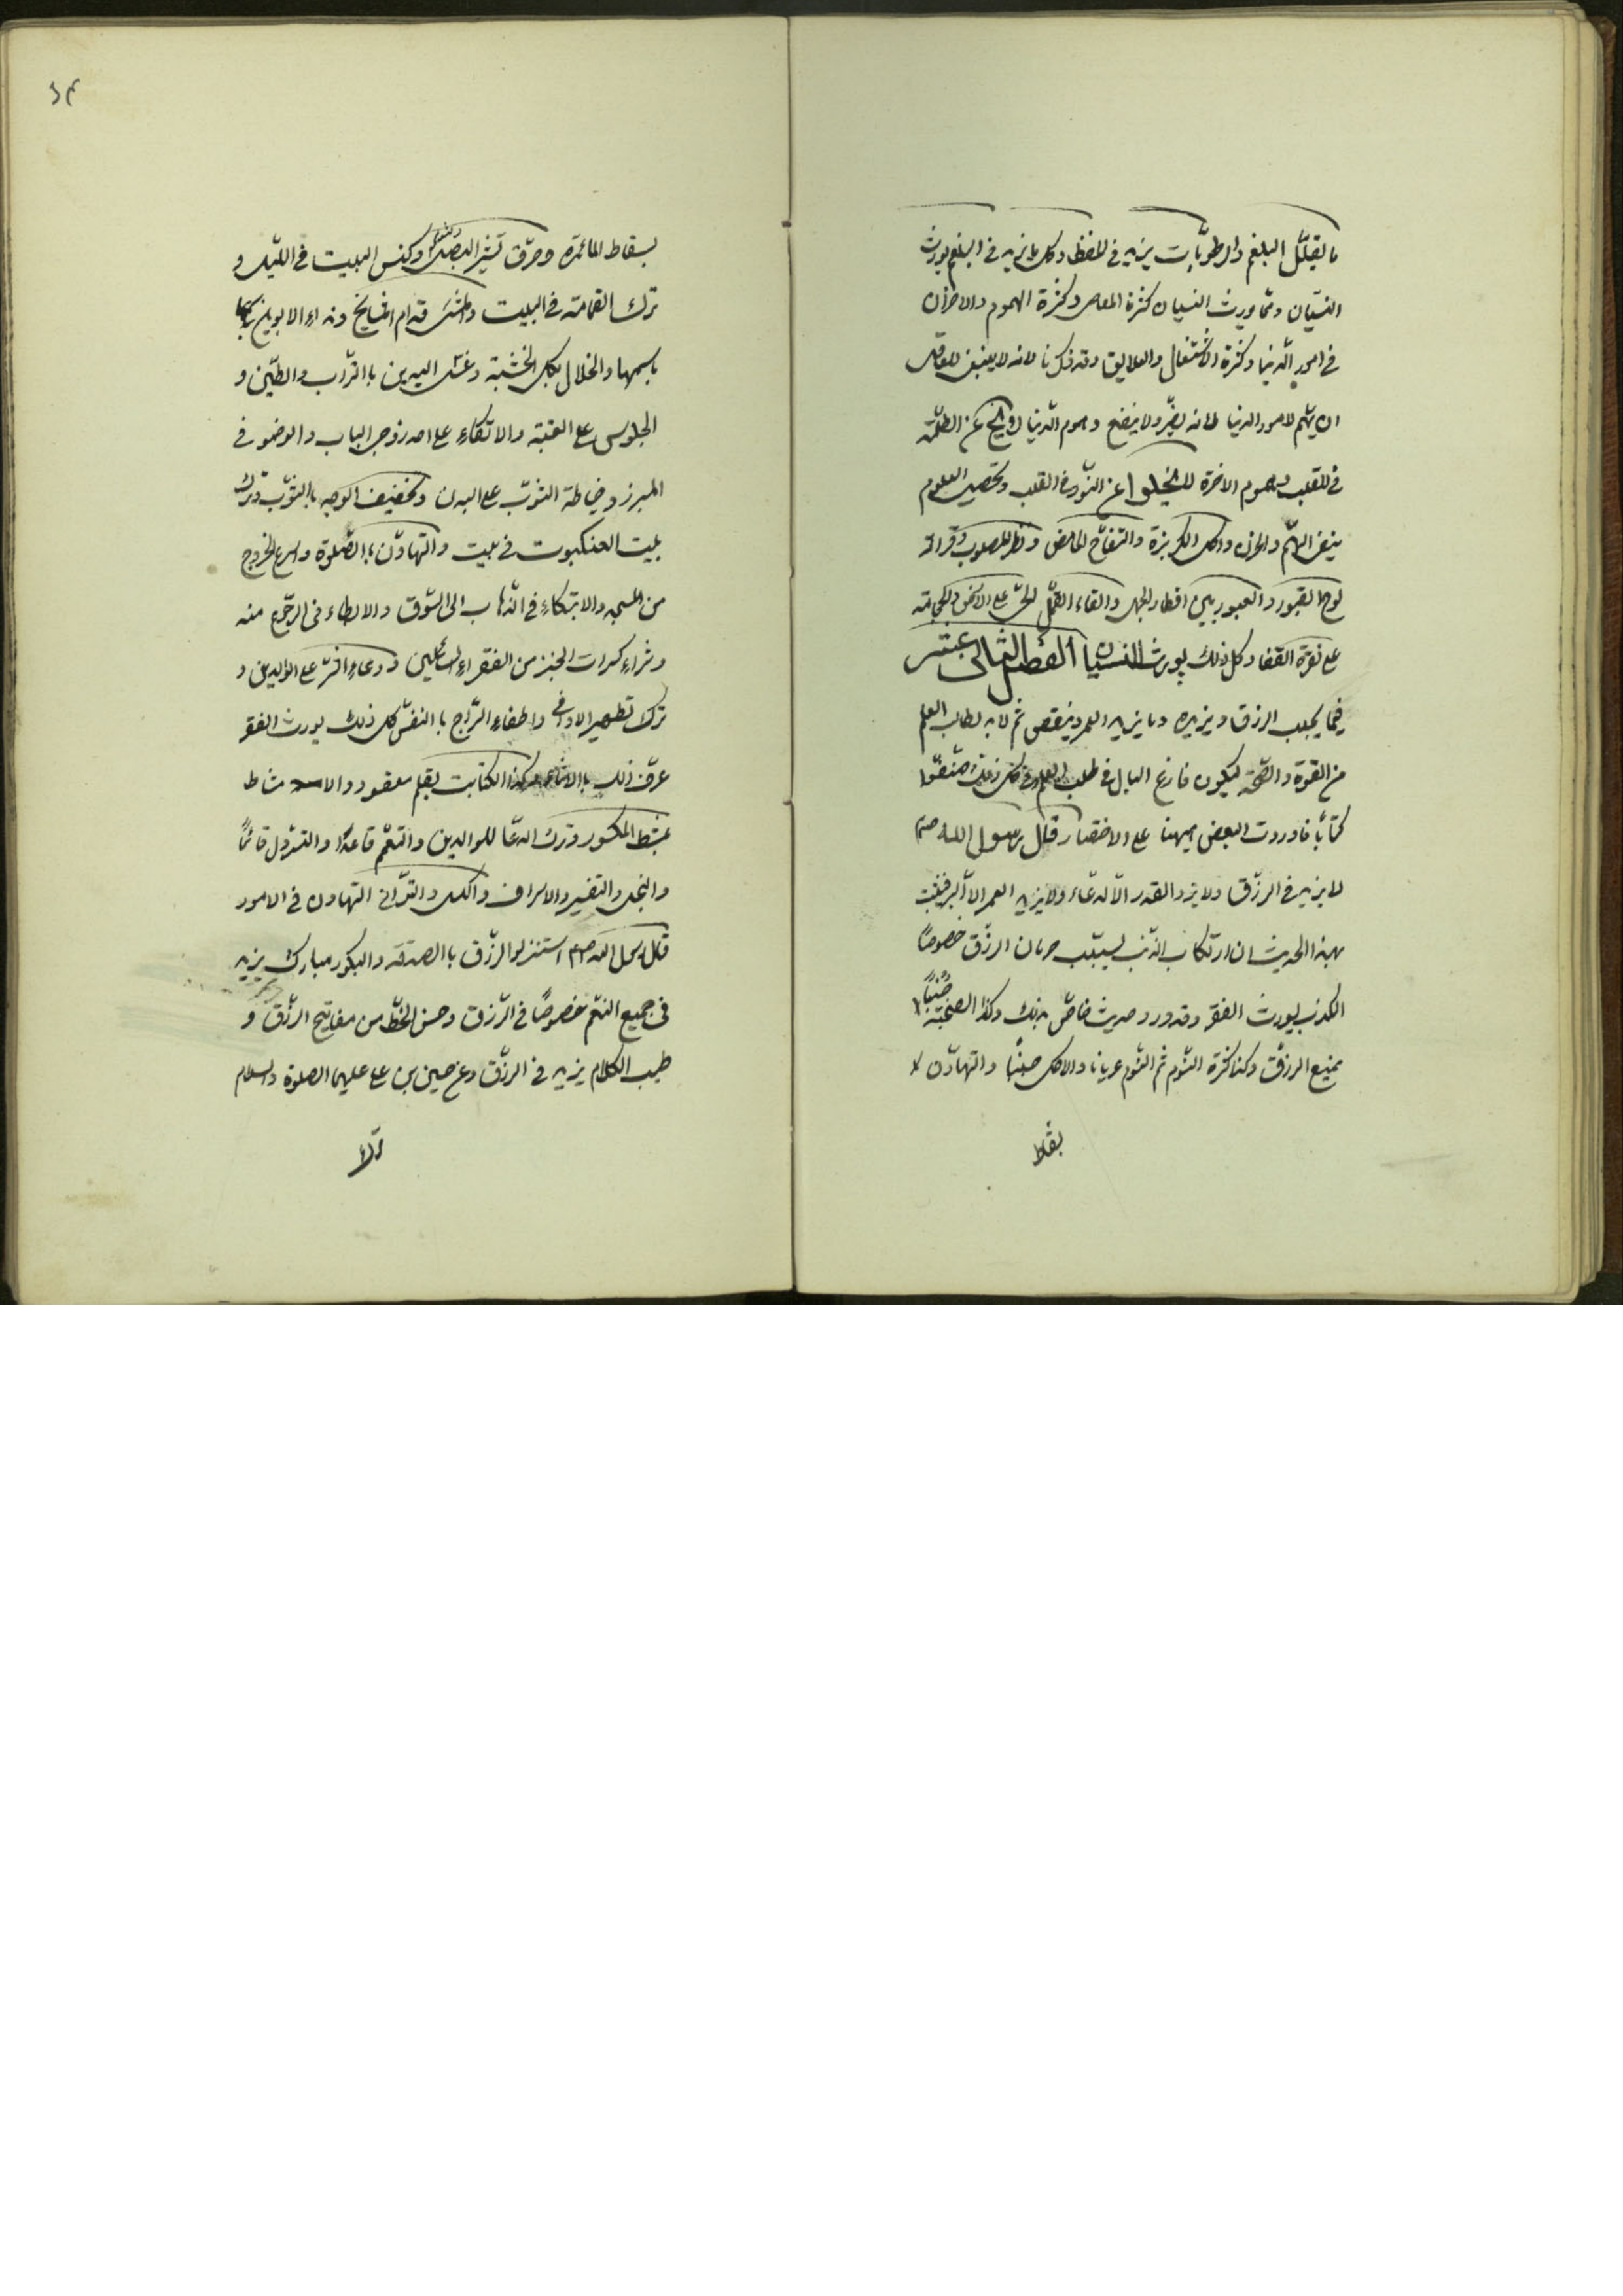 ما يقلّل البلغم والرطوبات يزيد فى الحفظ وكل ما يزيد فى البلغم يورث
النسيان وممّا يورث النسيان كثرة المعاصى وكثرة الهموم والاحزان
فى امور الدنيا وكثرة الاشتغال والعلايق وقد ذكرنا لانه لا ينبغى للعاقل
ان يهتم لامور الدنيا لانه يضرّ ولا ينفع وهموم الدنيا لا يخ عن الظلمة
فى القلب وهموم الاخرة لا يخلوا عن النور فى القلب وتحصيل العلوم
ينفى الهمّ والحزن واكل الكزبزة والتفاح الحامض ونظر المصلوب وقرائة
لوح القبور والعبور بين اقطار الجمل والقاء القمّل الحىّ على الارض والحجامة
على نقرة القفا وكل ذلك يورث النسيان الفصل الثانى عشر
فيما يجلب الرزق ويزيده وما يزيد العمر وينقص ثم لا بد لطالب العلم
من القوة والصحّة ليكون فارغ البال فى طلب العلم وفى كل ذلك صنّفوا
كتاباً فاوردت البعض ههنا على الاختصار قال رسول الله صم
لا يزيد فى الرزق ولا يرد القدر الّا الدعاء ولا يزيد العمر الّا البر فثبت
بهذا الحديث ان ارتكاب الذنب يسبب حرمان الرزق خصوصاً
الكذب يورث الفقر وقد ورد حديث خاصّ بذلك وكذا الصبحة جنباً
يمنع الرزق وكذا كثرة النوم ثم النوم عرياناً والاكل جنباً والتهاون
بقاط
بسقاط المائدة وحرق قشر البصل وكنس البيت فى الليل و
ترك القمامة فى البيت والمشى قدام المشايخ ونداء الابوين
باسمهما والخلال بكل الخشبة وغسل اليدين باالتراب والطين و
الجلوس على العتبة والاتكاء على احد زوجى الباب والوضوء فى
المبرز وخياطة الثوب على البدن وتخفيف الوجه باالثوب وترك
بيت العنكبوت فى بيت والتهاون باالصلوة واسرع الخروج
من المسجد والابتكاء فى الذهاب الى السوق والابطاء فى الرجوع منه
وشراء كسرات الخبز من الفقراء السائلين ودعاء الشرّ على الوالدين و
ترك تطهير الاوانى واطفاء السراج باالنفس كل ذلك يورث الفقر
عرف ذلك باالاثار وكذا الكتابت بقلم معقود والامتشاط
بمشط المكسور وترك الدعا للوالدين والتعمّم قاعداً والتسرول قائماً
والبخل والتقتير والاسراف والكسل والتوانى التهاون فى الامور
قال رسول الله صم استنزلوا الرزق باالصدقة والبكور مبارك يزيد
فى جميع النعم خصوصاً فى الرزق وحسن الخطّ من مفاتيح الرزق و
طيب الكلام يزيد فى الرزق وعن حسين بن على عليهما الصلوة والسلام